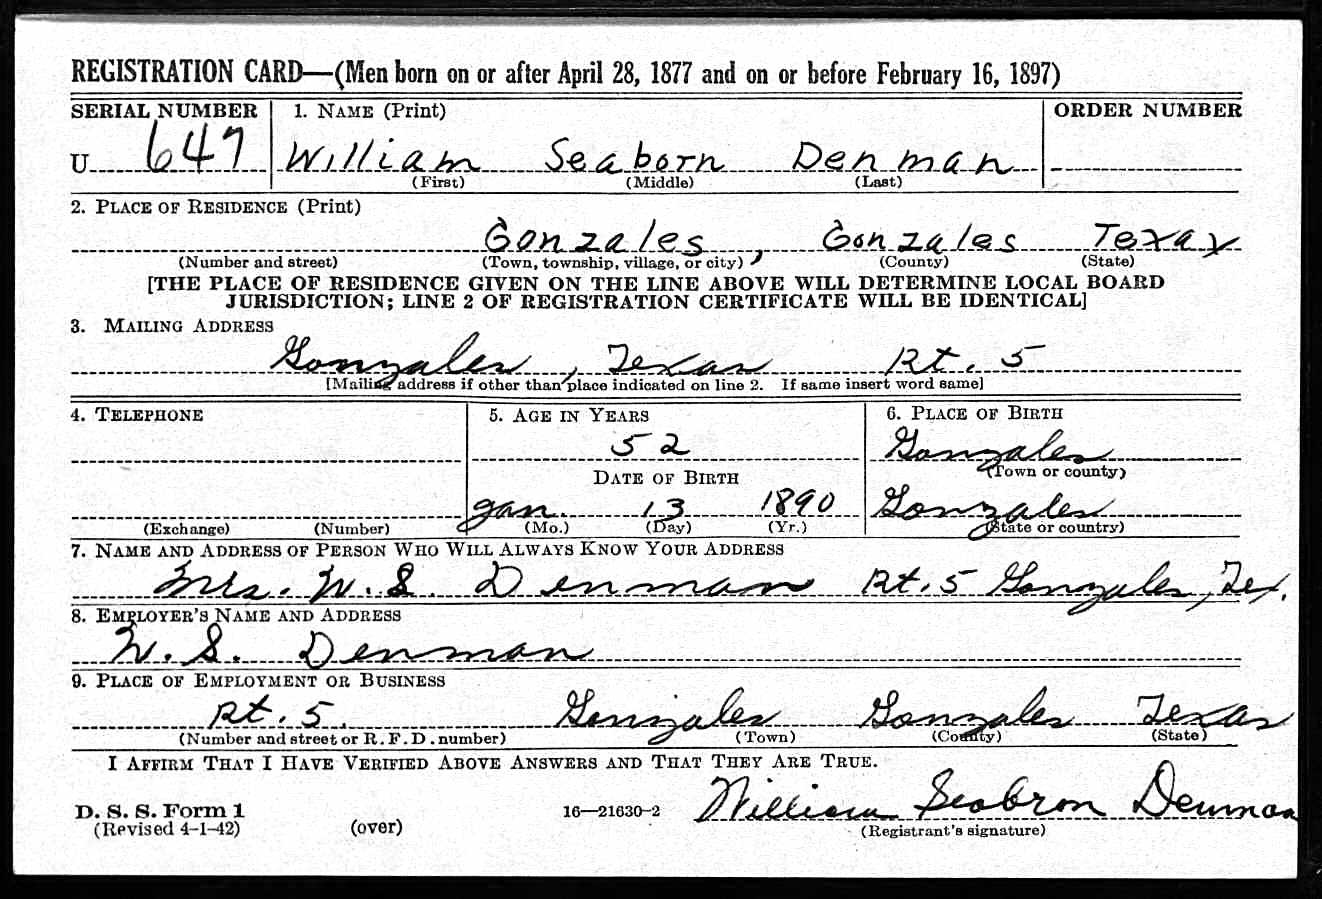 REGISTRATION CARD—(Men born on or after April 28, 1877 and on or before February 16, 1897)
SERIAL NUMBER 1. NAME (Print) ORDER NUMBER
U 647 William Seaborn Denman
(First) (Middle) (Last)
2. PLACE OF RESIDENCE (Print)
Gonzales, Gonzales Texas
(Number and street) (Town, township, village, or city) (County) (State)
[THE PLACE OF RESIDENCE GIVEN ON THE LINE ABOVE WILL DETERMINE LOCAL BOARD
JURISDICTION; LINE 2 OF REGISTRATION CERTIFICATE WILL BE IDENTICAL]
3. MAILING ADDRESS
Gonzales, Texas Rt. 5
[Mailing address if other than place indicated on line 2. If same insert word same]
4. TELEPHONE 5. AGE IN YEARS 6. PLACE OF BIRTH
52 Gonzales
DATE OF BIRTH (Town or county)
Jan. 13 1890 Gonzales
(Exchange) (Number) (Mo.) (Day) (Yr.) (State or country)
7. NAME AND ADDRESS OF PERSON WHO WILL ALWAYS KNOW YOUR ADDRESS
Mrs. W. S. Denman Rt. 5 Gonzales, Tex.
8. EMPLOYER'S NAME AND ADDRESS
W. S. Denman
9. PLACE OF EMPLOYMENT OR BUSINESS
Rt. 5. Gonzales Gonzales Texas
(Number and street or R. F. D. number) (Town) (County) (State)
I AFFIRM THAT I HAVE VERIFIED ABOVE ANSWERS AND THAT THEY ARE TRUE.
D. S. S. Form 1
(Revised 4-1-42) (over) 16—21630-2 William Seabron Denman
(Registrant's signature)